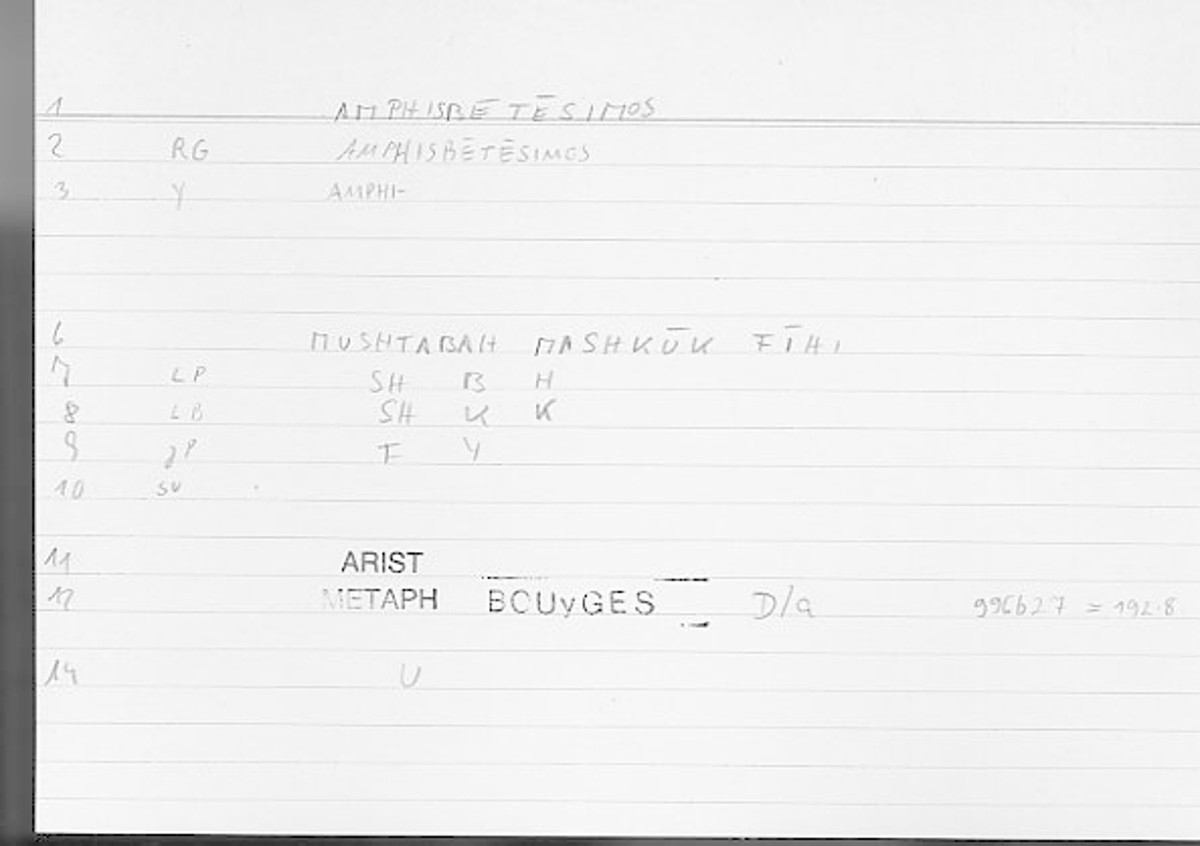 1 AMPHISBĒTĒSIMOS
2 RG AMPHISBĒTĒSIMOS
3 Y AMPHI-
6 MUSHTABAH MASHKŪK FĪHI
7 LP SH B H
8 LB SH K K
9 JP F Y
10 SU
11 ARIST
12 METAPH BOUyGES D/a 996b27 = 192.8
14 U